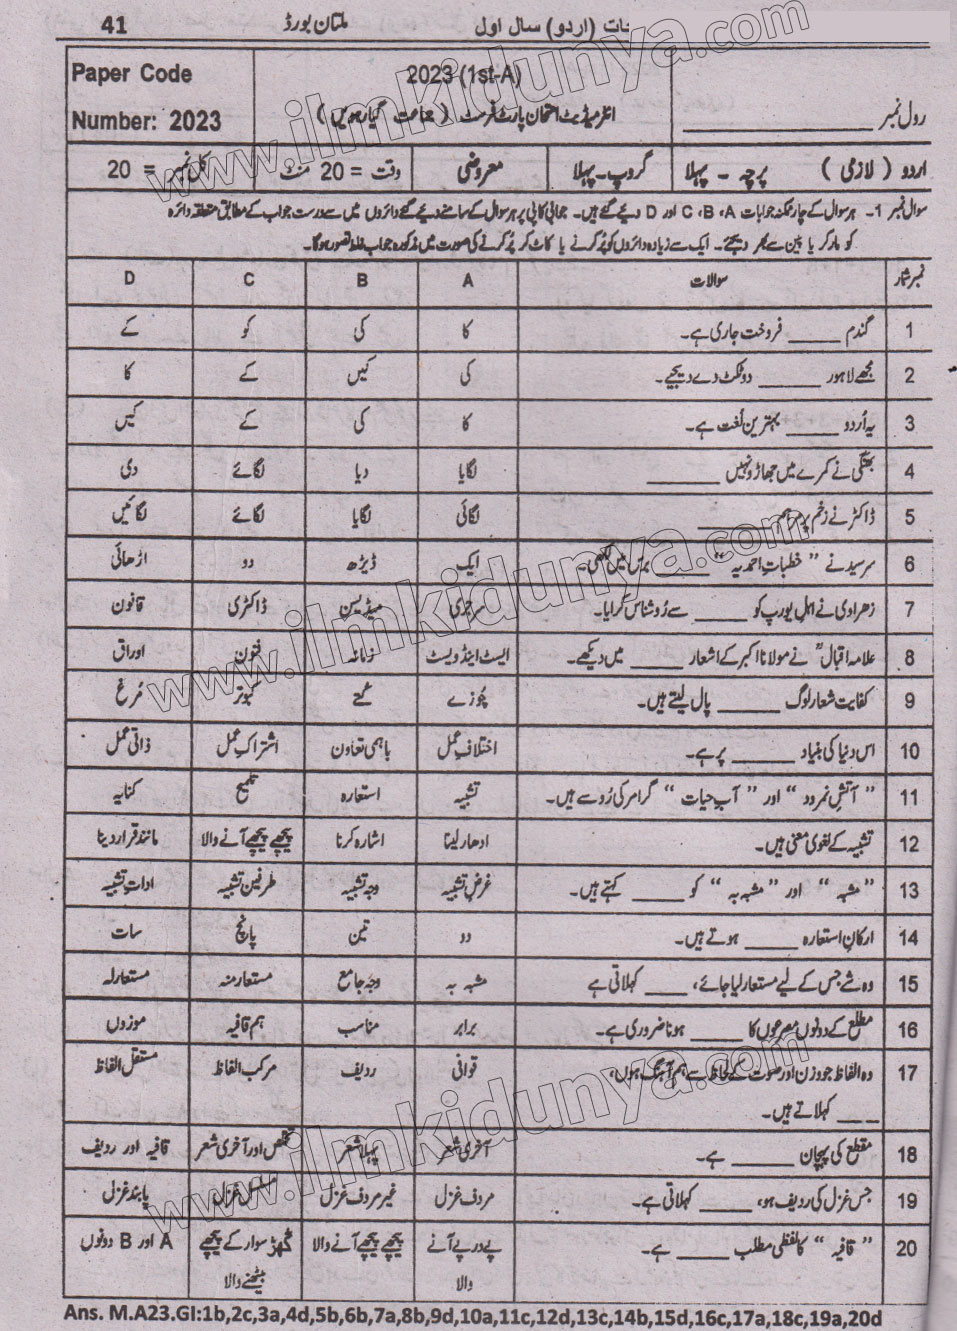 41 ملتان بورڈ جات (اردو) سال اول
Paper Code 2023 (1st-A)
Number: 2023 انٹرمیڈیٹ امتحان پارٹ فرسٹ ( جماعت گیارہویں ) رول نمبر
اردو ( لازمی ) پرچہ ۔ پہلا گروپ۔پہلا معروضی وقت = 20 منٹ کل نمبر = 20
سوال نمبر 1۔ ہر سوال کے چار ممکنہ جوابات A، B، C اور D دیے گئے ہیں۔ جوابی کاپی پر ہر سوال کے سامنے دیے گئے دائروں میں سے درست جواب کے مطابق متعلقہ دائرہ
کو مارکر یا پین سے بھر دیجئے۔ ایک سے زیادہ دائروں کو پُر کرنے یا کاٹ کر پُر کرنے کی صورت میں مذکورہ جواب غلط تصور ہوگا۔
نمبر شمار سوالات A B C D
1 گندم ______ فروخت جاری ہے۔ کا کی کو کے
2 مجھے لاہور ______ دو ٹکٹ دے دیجیے۔ کی کیں کے کا
3 یہ اُردو ______ بہترین لُغت ہے۔ کا کی کے کیں
4 بھنگی نے کمرے میں جھاڑو نہیں ______ لگایا دیا لگائے دی
5 ڈاکٹر نے زخم پر مرہم ______ لگائی لگایا لگائے لگائیں
6 سرسید نے " خطباتِ احمدیہ " ______ برس میں لکھی۔ ایک ڈیڑھ دو اڑھائی
7 زہراوی نے اہلِ یورپ کو ______ سے رُوشناس کرایا۔ سرجری میڈیسن ڈاکٹری قانون
8 علامہ اقبالؒ نے مولانا اکبر کے اشعار ______ میں دیکھے۔ ایسٹ اینڈ ویسٹ زمانہ فنون اوراق
9 کفایت شعار لوگ ______ پال لیتے ہیں۔ چُوزے کُتے کبوتر مُرغ
10 اس دنیا کی بنیاد ______ پر ہے۔ اختلافِ عمل باہمی تعاون اشتراکِ عمل ذاتی عمل
11 " آتشِ نمرود " اور " آبِ حیات " گرامر کی رُو سے ہیں۔ تشبیہ استعارہ تلمیح کنایہ
12 تشبیہ کے لغوی معنی ہیں۔ ادھار لینا اشارہ کرنا پیچھے پیچھے آنے والا مانند قرار دینا
13 " مشبہ " اور " مشبہ بہ " کو ______ کہتے ہیں۔ غرضِ تشبیہ وجہِ تشبیہ طرفینِ تشبیہ اداتِ تشبیہ
14 ارکانِ استعارہ ______ ہوتے ہیں۔ دو تین پانچ سات
15 وہ شے جس کے لیے مستعار لیا جائے، ____ کہلاتی ہے مشبہ بہ وجہِ جامع مستعار منہ مستعار لہ
16 مطلع کے دونوں مصرعوں کا ______ ہونا ضروری ہے۔ برابر مناسب ہم قافیہ موزوں
17 وہ الفاظ جو وزن اور صوت کے لحاظ سے ہم آہنگ ہوں، قوافی ردیف مرکب الفاظ مستقل الفاظ
____ کہلاتے ہیں۔
18 مقطع کی پہچان ______ ہے۔ آخری شعر پہلا شعر تخلص اور آخری شعر قافیہ اور ردیف
19 جس غزل کی ردیف ہو، ______ کہلاتی ہے۔ مردف غزل غیر مردف غزل مسلسل غزل پابند غزل
20 " قافیہ " کا لفظی مطلب ______ ہے۔ پے در پے آنے پیچھے پیچھے آنے والا گھڑ سوار کے پیچھے A اور B دونوں
والا بیٹھنے والا
Ans. M.A23.GI:1b,2c,3a,4d,5b,6b,7a,8b,9d,10a,11c,12d,13c,14b,15d,16c,17a,18c,19a,20d
www.ilmkidunya.com
www.ilmkidunya.com
www.ilmkidunya.com